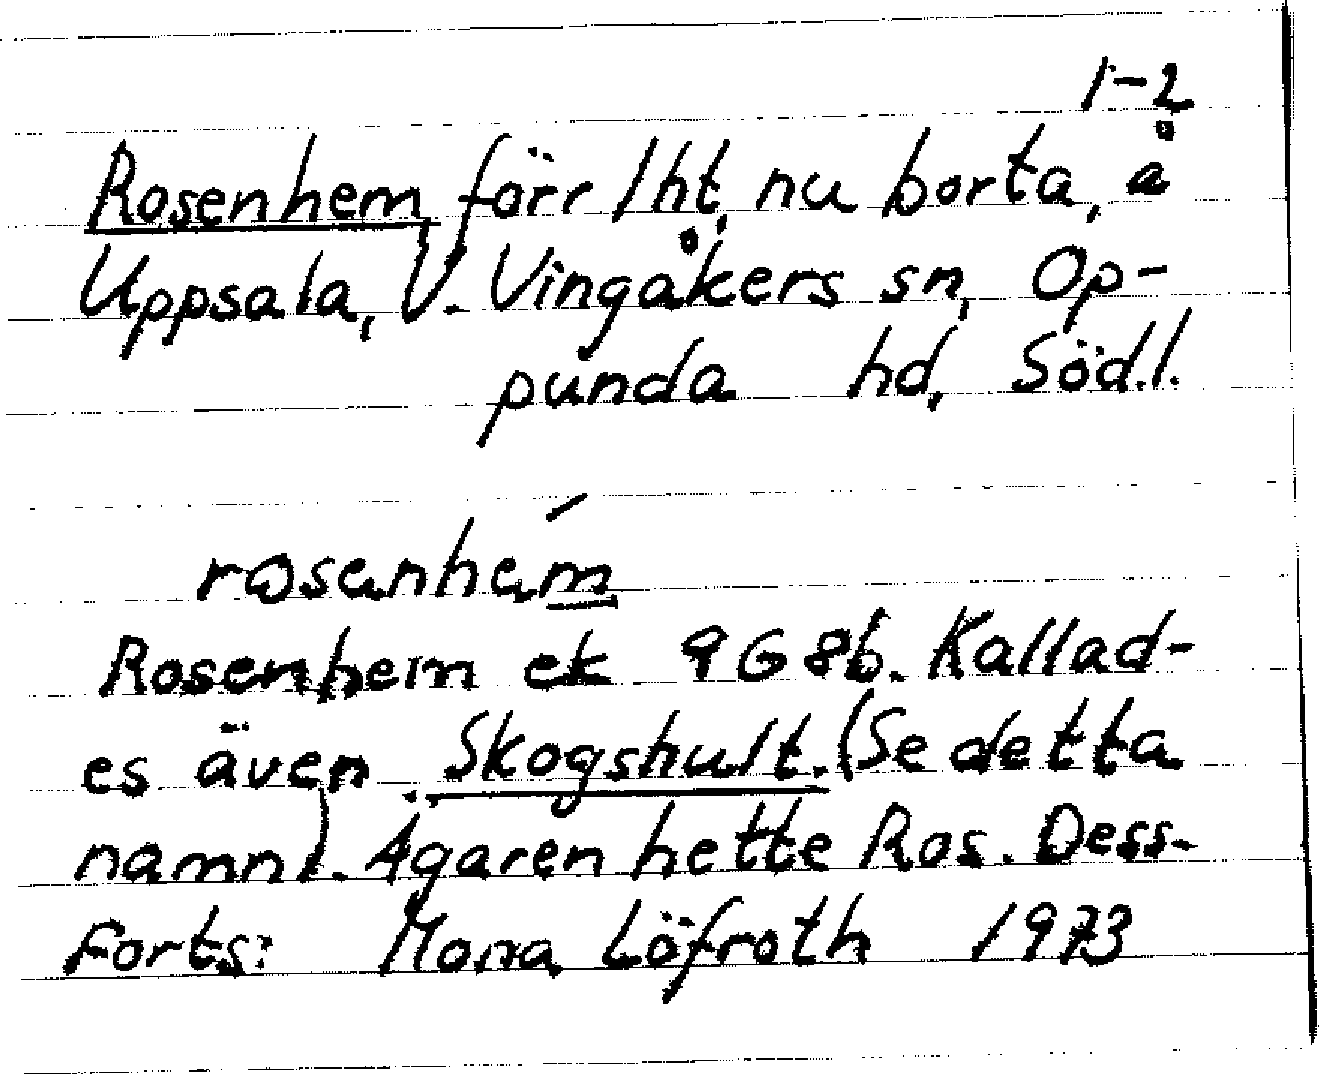 1-2
Rosenhem förr lht, nu borta, å
Uppsala, V. Vingåkers sn, Op-
punda hd, Södl.
rosanhem
Rosenhem ek 9G 8b. Kallad-
es även Skogshult. (Se detta
namn). Ägaren hette Ros. Dess-
Forts: Mona Löfroth 1973